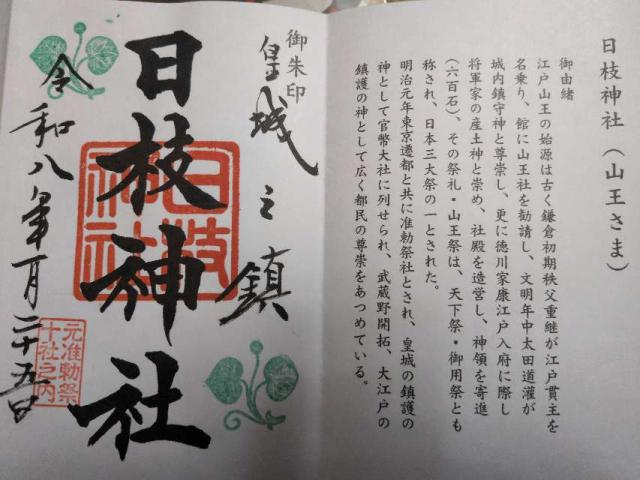 日枝神社（山王さま）
御由緒
江戸山王の始源は古く鎌倉初期秩父重継が江戸貫主を
名乗り、館に山王社を勧請し、文明年中太田道灌が
城内鎮守神と尊崇し、更に徳川家康江戸入府に際し
将軍家の産土神と崇め、社殿を造営し、神領を寄進
（六百石）、その祭礼・山王祭は、天下祭・御用祭とも
称され、日本三大祭の一とされた。
明治元年東京遷都と共に准勅祭社とされ、皇城の鎮護の
神として官幣大社に列せられ、武蔵野開拓、大江戸の
鎮護の神として広く都民の尊崇をあつめている。
御朱印
皇城之鎮
日枝神社
日枝
神社
令和八年一月二十五日
元准勅祭
十社之内